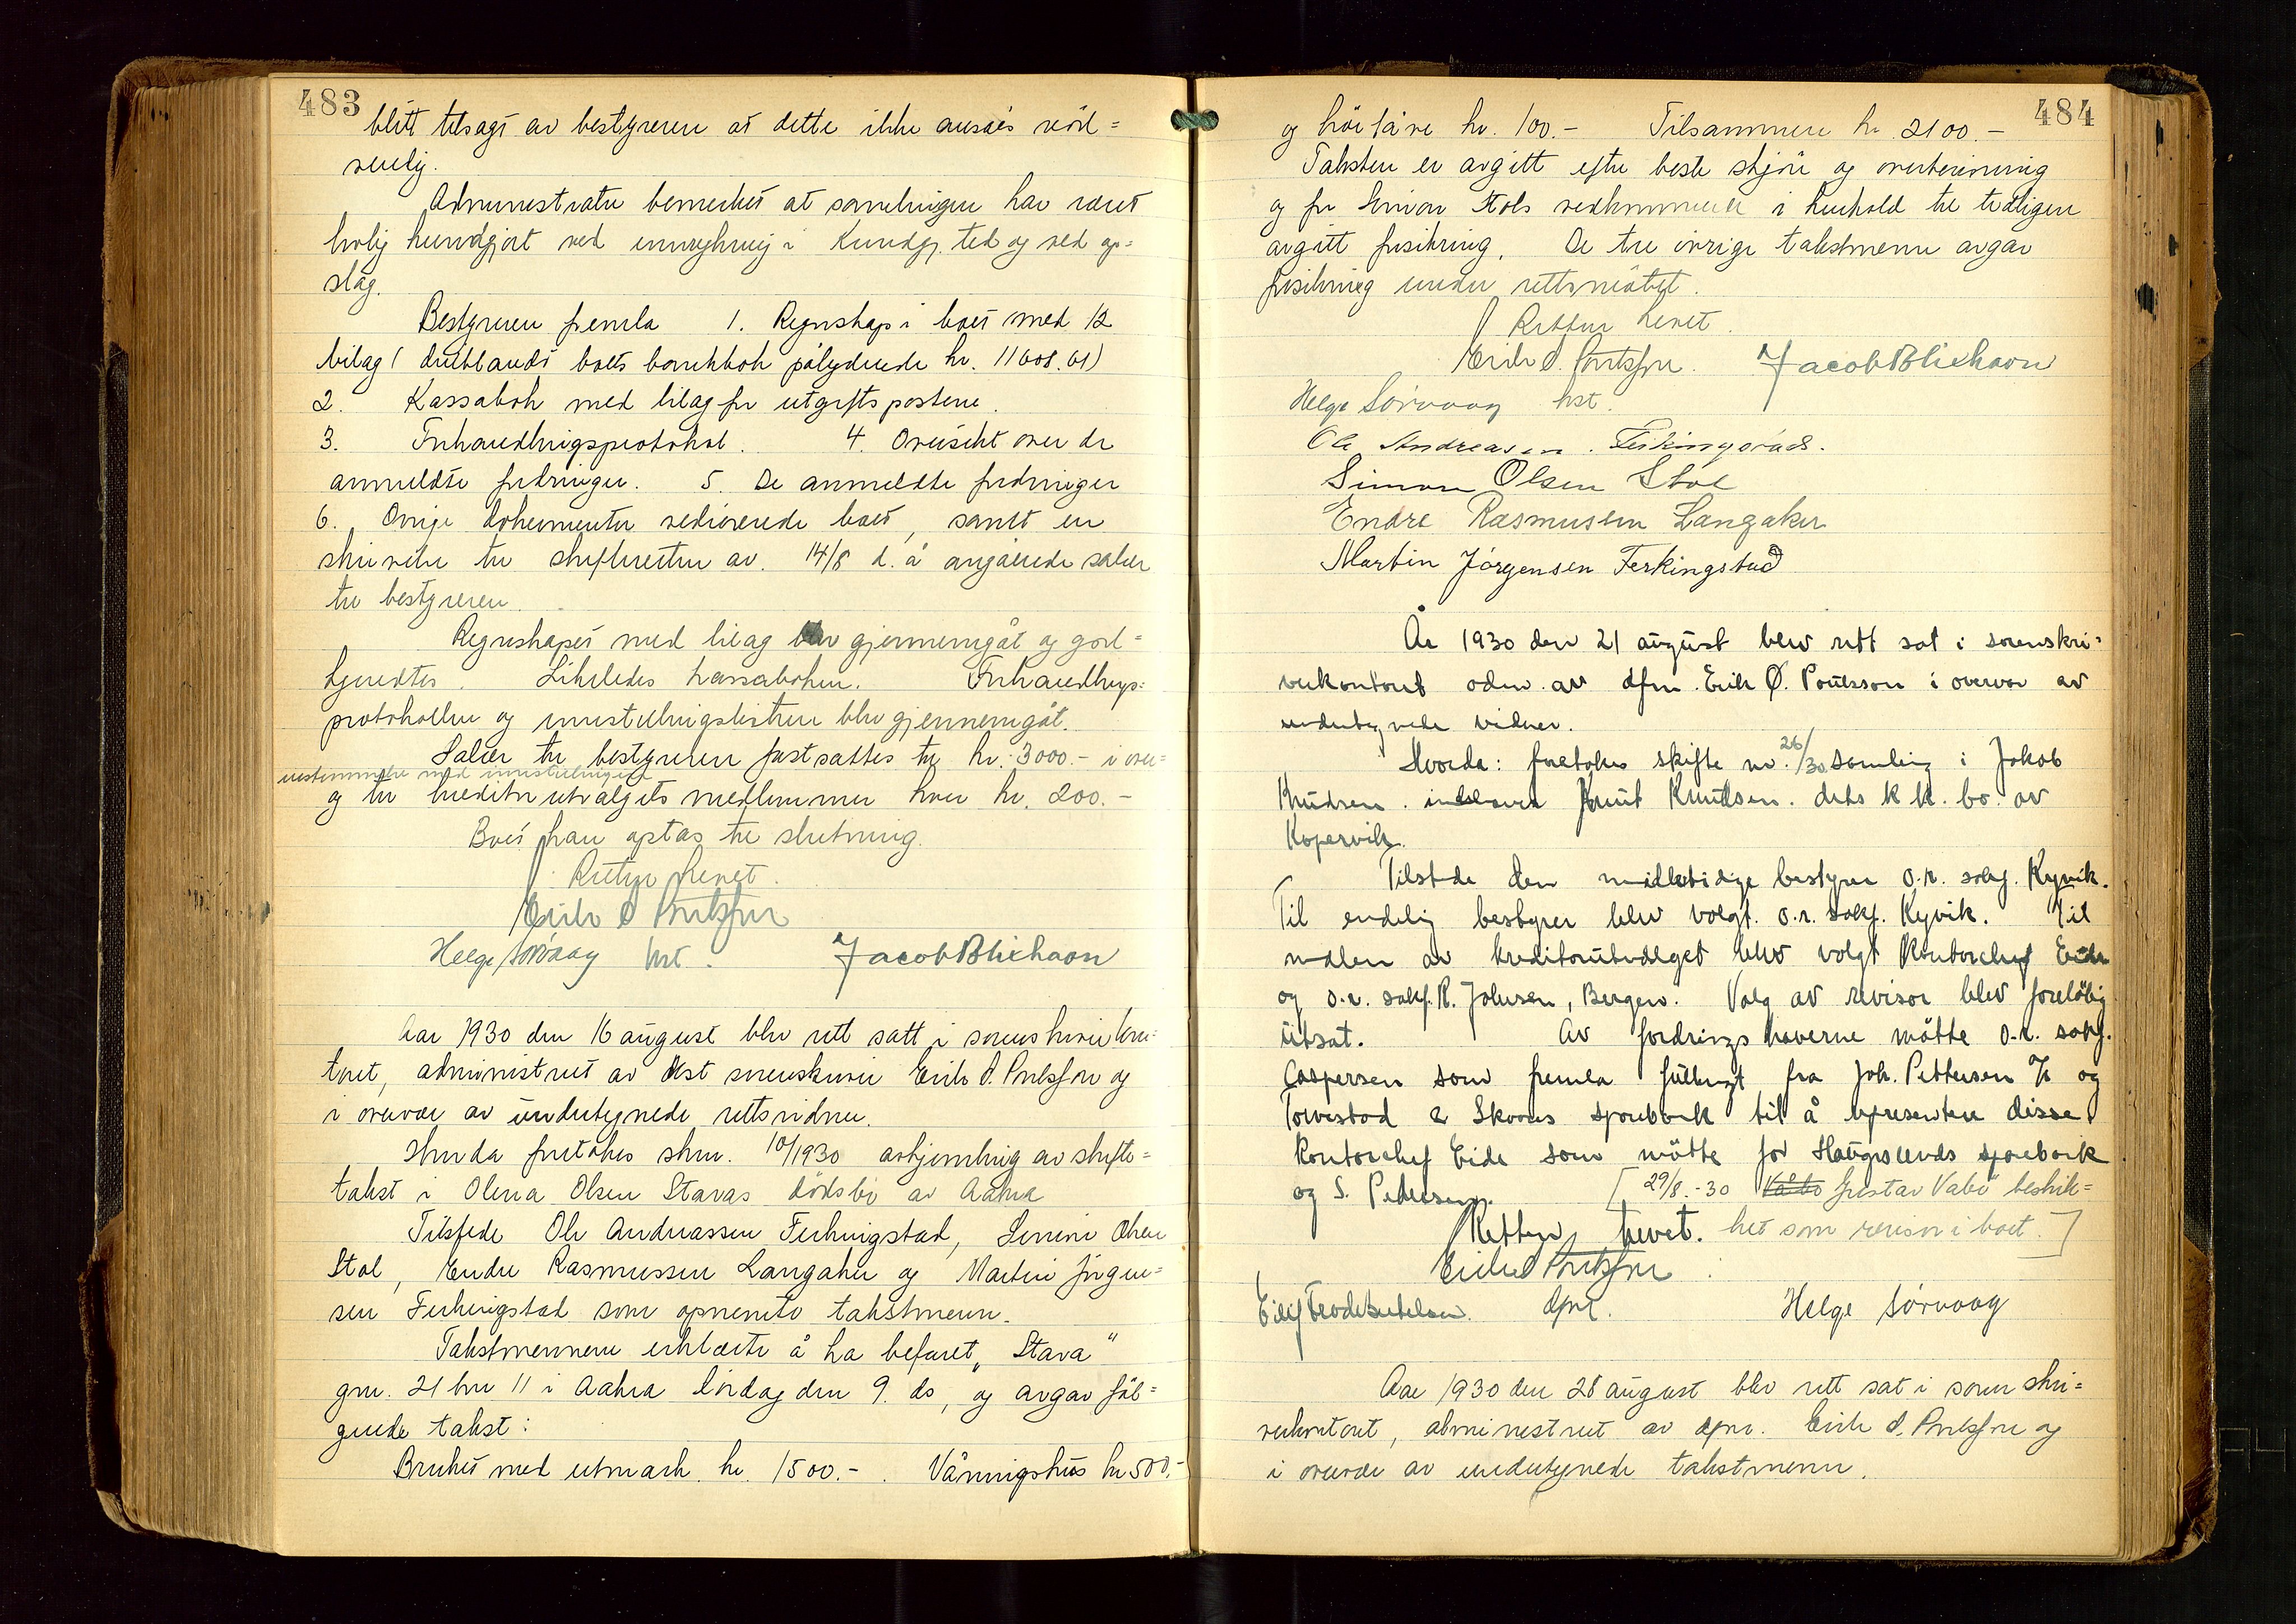 483
blitt tilsagt av bestyreren at dette ikke ansåes nöd=
vendig.
Administrator bemerket at samlingen har været
lovlig kundgjort ved innrykning i Kundgj. tid og ved op=
slag.
Bestyreren fremla 1. Regnskap i boet med 12
bilag (deriblandt boets bankbok pålydende kr. 11608.01)
2. Kassabok med bilag for utgiftspostene.
3. Forhandlingsprotokol. 4. Oversikt over de
anmeldte fordringer. 5. De anmeldte fordringer
6. Övrige dokumenter vedrörende boet, samt en
skrivelse til skifteretten av 14/8 d. å angående salær
til bestyreren.
Regnskapet med bilag blev gjennemgåt og god=
kjendtes. Likeledes kassaboken. Forhandlings=
protokollen og innstillingslisten blev gjennemgåt.
Salær til bestyreren fastsattes til kr. 3000.- i over=
ensstemmelse med innstillingen
og til kreditorutvalgets medlemmer hver kr. 200.-
Boet kan optas til slutning.
Retten hevet.
Erik Ø. Poulsson
Helge Sörvaag hst. Jacob Blikhavn
Aar 1930 den 16 august blev rett satt i sorenskriverkon=
toret, administrert av kst sorenskriver Erik Ø. Poulsson og
i overvær av undertegnede rettsvidner.
Hvorda foretokes skjönn. 10/1930 avhjemling av skifte=
takst i Olena Olsen Stavas dödsbo av Aakra
Tilstede Ole Andreassen Ferkingstad, Simon Olsen
Stol, Endre Rasmussen Langaker og Martin Jörgen=
sen Ferkingstad som opnevnte takstmenn.
Takstmennene erklærte å ha befaret "Stava"
gnr. 21 bnr 11 i Aakra lördag den 9. ds, og avgav föl=
gende takst:
Bruket med utmark kr. 1500.-. Våningshus kr 500.-
484
og höiløe kr. 100.- Tilsammen kr 2100.-
Taksten er avgitt efter beste skjön og overbevisning
og for Simon Stols vedkommende i henhold til tidligere
avgitt forsikring. De tre övrige takstmenn avgav
forsikring under rettsmötet.
Retten hevet.
Erik Ø. Poulsson. Jacob Blikhavn
Helge Sörvaag hst.
Ole Andreasen. Ferkingstad.
Simon Olsen Stol
Endre Rasmussen Langaker
Martin Jörgensen Ferkingstad
År 1930 den 21 august blev rett sat i sorenskri=
verkontoret adm. av dfm. Erik Ø. Poulsson i overvær av
undertegnede vidner.
Hvorda: foretokes skifte nr. 26/30 samling i Jakob
Knudsen. innehaver Knut Knudsen. dets k.k. bo av
Kopervik.
Tilstede den midlertidige bestyrer o.r. sakf. Kyvik.
Til endelig bestyrer blev valgt. o.r. sakf. Kyvik. Til
medlem av kreditorutvalget blev valgt Kontorchef Eide
og o.r. sakf. R. Johnsen, Bergen. Valg av revisor blev foreløbig
utsat. Av fordringshaverne mötte o.r. sakf.
Caspersen som fremla fullmagt fra Joh. Pettersen & og
Torvestad & Skaares sparebank til å representere disse
Kontorchef Eide som mötte for Haugesunds sparebank
og S. Pedersen. [29/8.-30 Vabö Gustav Vabö beskik=
Retten hevet. ket som revisor i boet.]
Erik Ø. Poulsson
dfm. Helge Sörvaag
Aar 1930 den 28 august blev rett sat i sorenskri=
verkontoret, administrert av dfm. Erik Ø. Poulsson og
i overvær av undertegnede takstmenn.